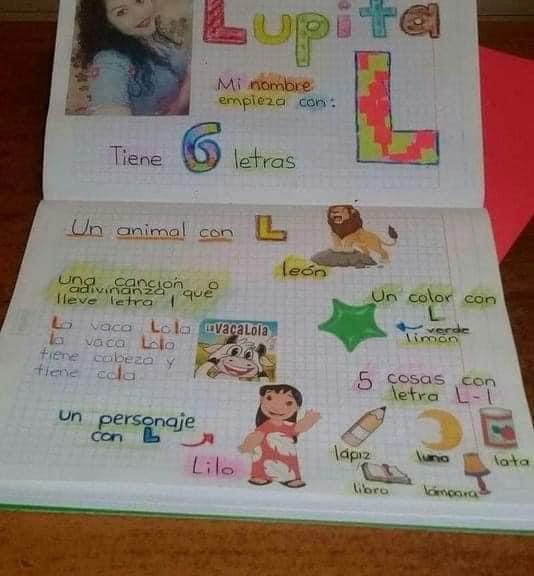 Lupita
Mi nombre
empieza con:
L
Tiene 6 letras
Un animal con L
león
Una canción o
adivinanza que
lleve letra l
La vaca Lola
la vaca Lola
tiene cabeza y
tiene cola.
LA VACA LOLA
Un color con
L
verde
limón
5 cosas con
letra L-l
un personaje
con L
Lilo
lápiz
luna
lata
libro
lámpara